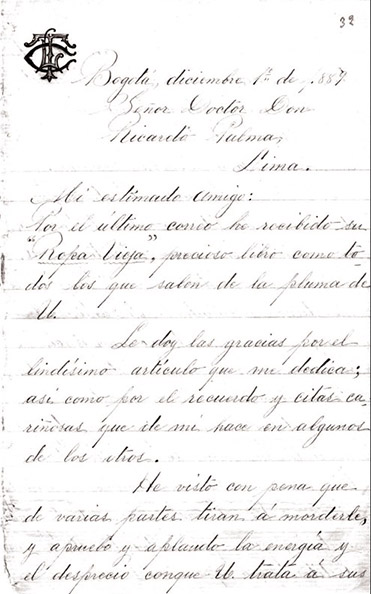 32
Bogotá, diciembre 1º de 1889
Señor Doctor Don
Ricardo Palma,
Lima.
Mi estimado amigo:
Por el último correo he recibido su
"Ropa Vieja", precioso libro como to-
dos los que salen de la pluma de
U.
Le doy las gracias por el
lindísimo artículo que me dedica;
así como por el recuerdo y citas ca-
riñosas que de mi hace en algunos
de los otros.
He visto con pena que
de varias partes tiran á morderle,
y apruebo y aplaudo la energía y
el desprecio conque U. trata á sus